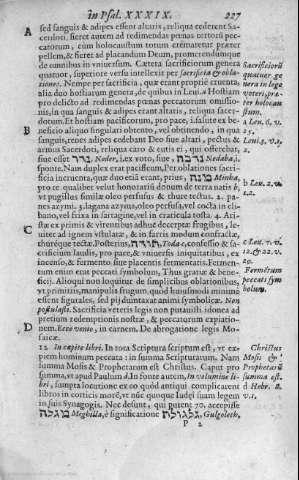 in Psal. XXXIX. 227
A sed sanguis & adipes essent altaris, reliqua cederent Sacer-
doti. fieret autem ad redimendas pœnas certorū pec-
catorum, cum holocaustum totum cremaretur præter
pellem, & fieret ad placandum Deum, promerendumque
de omnibus in vniuersum. Cætera sacrificiorum genera
quatuor, superiore versu intellexit per sacrificia & obla-
tiones. Nempe per sacrificia, quæ erant propriè cruenta,
alia duo hostiarum genera, de quibus in Leui. a Hostiam
pro delicto ad redimendas pœnas peccatorum omissio-
nis, in qua sanguis & adipes erant altaris, reliqua sacer-
dotum. Et hostiam pacificorum, pro pace, salute ex be-
B neficio aliquo singulari obtento, vel obtinendo, in qua
sanguis, renes adipes cedebant Deo siue altari, pectus &
armus Sacerdoti, reliqua caro & cutis ei, qui offerebat,
siue esset נדר, Neder, i. ex voto, siue, נדבה, Nedaba, i.
sponte. Nam duplex erat pacificum. Per oblationes sacri-
ficia incruenta, quæ duo etiā erant, prius, מנחה, Minha,
pro
vt pugillus similæ oleo perfusus & thure tectus. 2. pa-
nes azymi. 3. lagana azyma, oleo perfusa, vel cocta in cli-
bano, vel frixa in sartagine, vel in craticula tosta. 4. Ari-
C stæ ex primis & virentibus adhuc decerptæ frugibus, le-
uiter ad ignem vstulatæ, & in farris modum confractæ,
thuréque tectæ. Posterius, תודה, Toda c, confessio & sa-
crificium laudis, pro pace, & vniuersis iniquitatibus, ex
incenso, & fermento siue placentis fermentatis. Fermen-
tum enim erat peccati symbolum, Thus gratiæ & bene-
ficij. Alioqui non loquitur de simplicibus oblationibus,
vt primitiis, manipulis frugum, quod huiusmodi minimè
essent figurales, sed pij duntaxat animi symbolicæ. Non
postulasti. Sacrificia veteris legis non putauisti idonea ad
pretium redemptionis nostræ, & peccatorum expiatio-
D nem. Ecce venio, in carnem. De abrogatione legis Mo-
saicæ.
12 In capite libri. In tota Scriptura scriptum est, vt ex-
piem hominum peccata: in summa Scripturarum. Nam
summa Mosis & Prophetarum est Christus. Caput pro
summa, vt apud Paulum d. In fonte autem, in volumine li-
bri, sumpta locutione ex eo quòd antiqui complicarent
libros in corticis morē, vt nūc quoque Iudæi suam legem
in suis Synagogis. Nec desunt, qui putent 70. accepisse
מגלה Meghilla, è significatione גלגולת, Gulgoleth,
P 2
Sacrificiorū
quatuor ge
nera in lege
veteri, præ-
ter holocau
stum.
a Leu. 6. v.
25.
Leui 3. v. 1.
2.
b Leu. 2. v.
1.2.
c Leu. 7. v.
12. & 22. v.
29.
Fermētum
peccati sym
bolum.
Christus
Mosis &
Prophetarū
summa est.
d Hebr. 8.
v. 1.